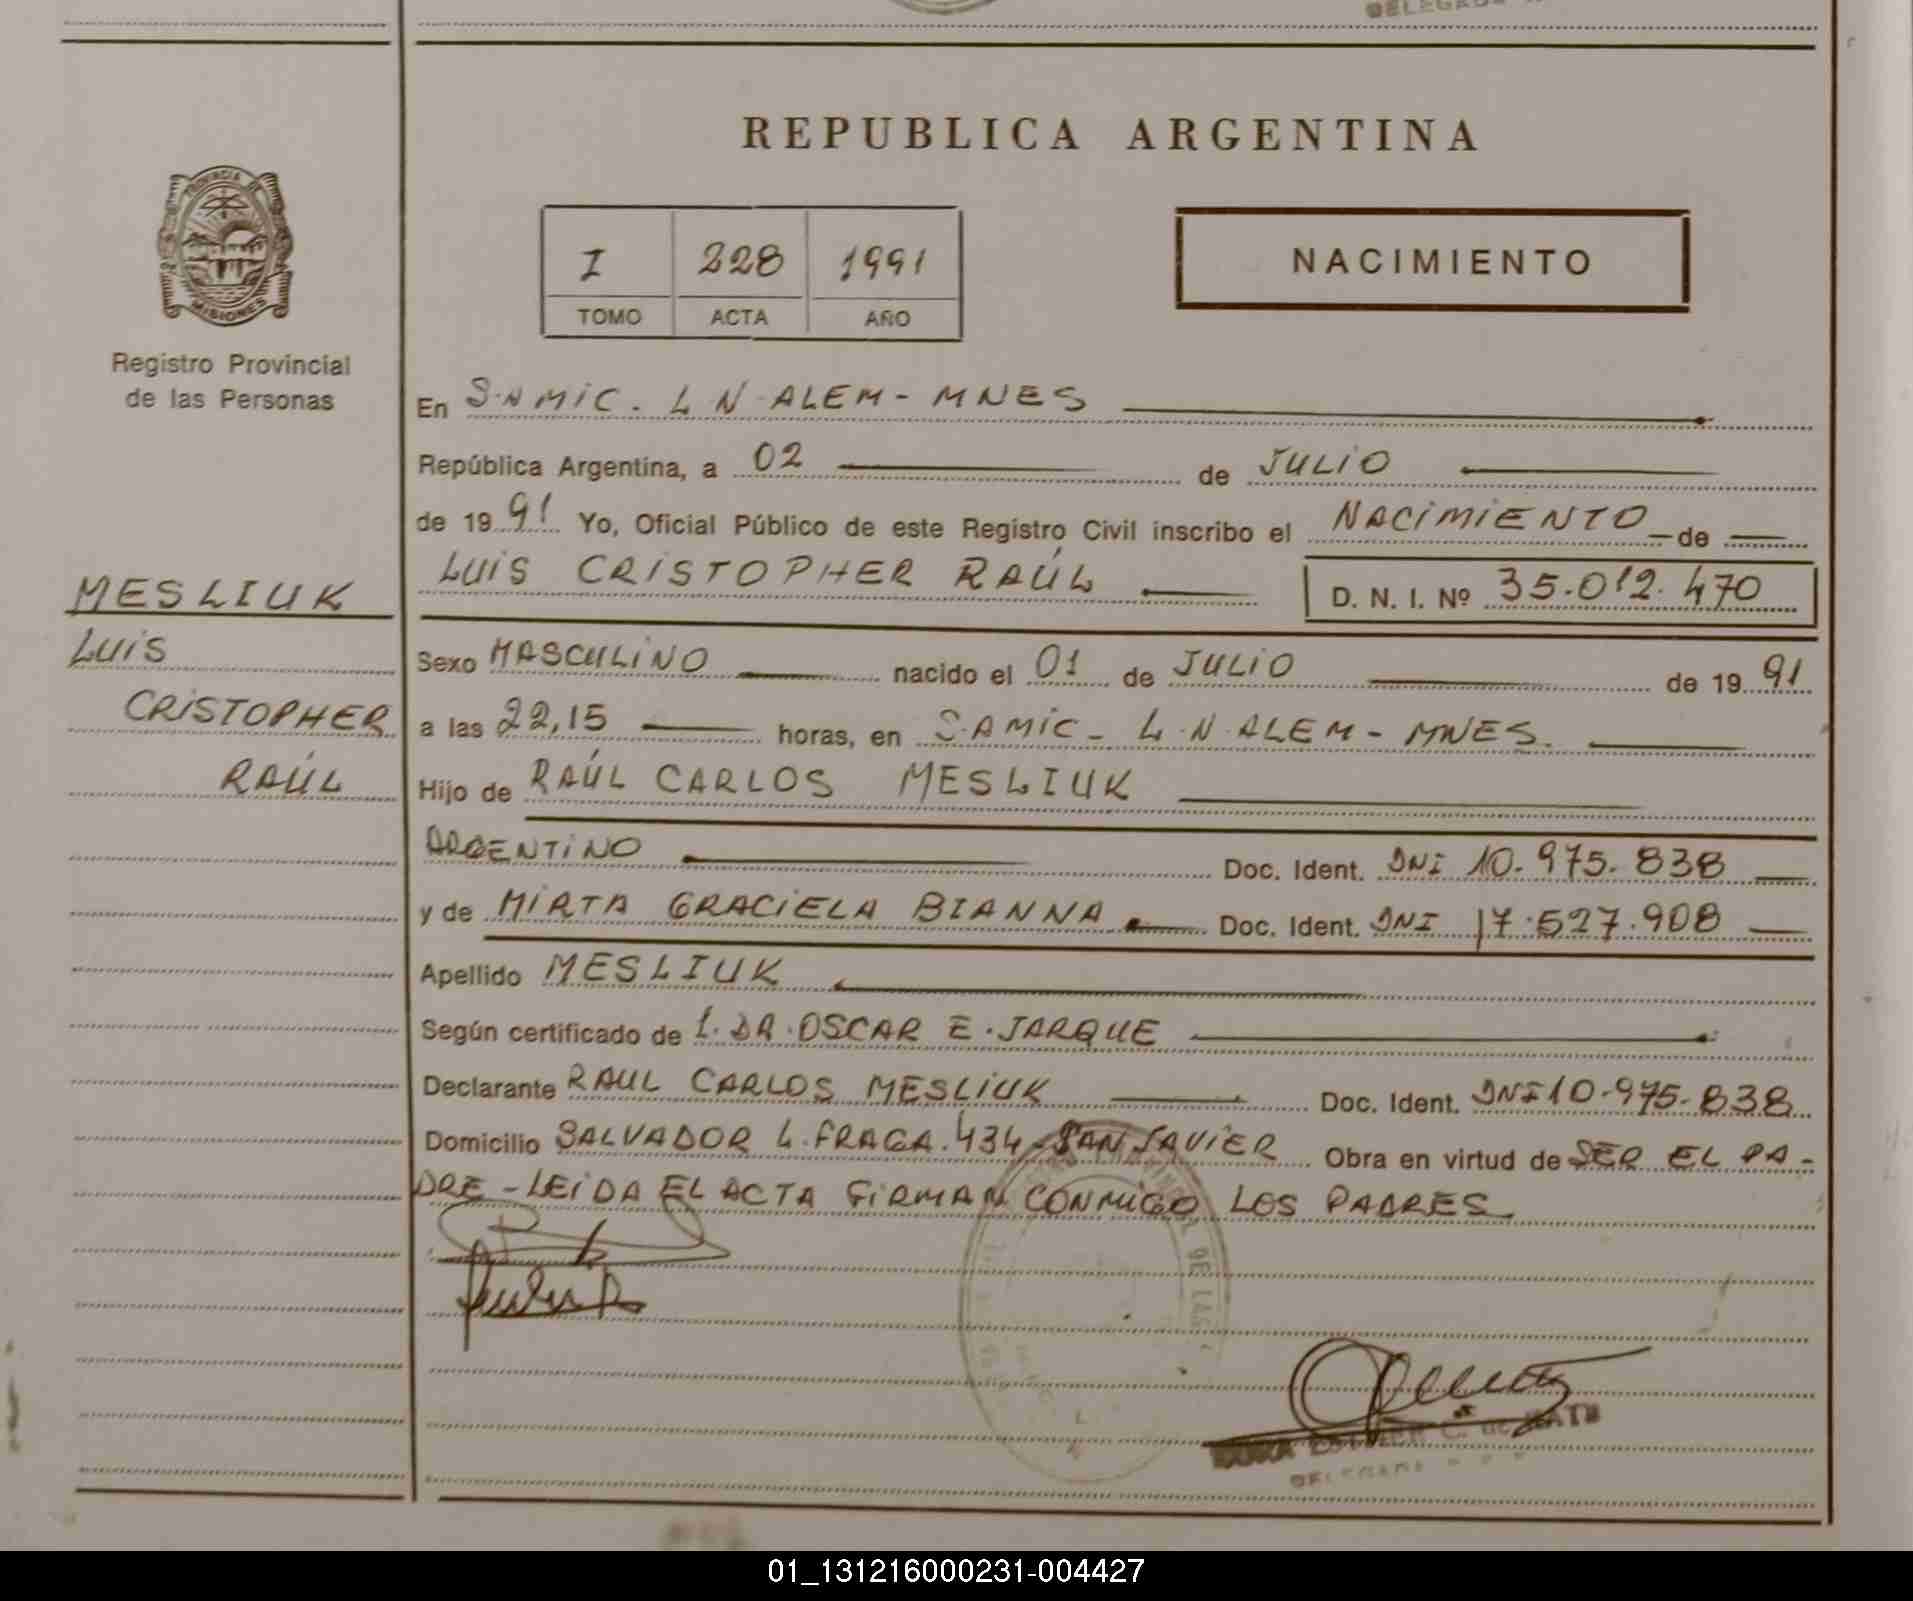 REPUBLICA ARGENTINA
PROVINCIA DE MISIONES
I 228 1991
TOMO ACTA AÑO
NACIMIENTO
Registro Provincial
de las Personas
MESLIUK
LUIS
CRISTOPHER
RAÚL
En S.N MIC. L N ALEM - MNES
República Argentina, a 02 de JULIO
de 1991 Yo, Oficial Público de este Registro Civil inscribo el NACIMIENTO de
LUIS CRISTOPHER RAÚL D. N. I. Nº 35.012.470
Sexo MASCULINO nacido el 01 de JULIO de 1991
a las 22,15 horas, en S.AMIC - L.N.ALEM - MNES.
Hijo de RAÚL CARLOS MESLIUK
ARGENTINO Doc. Ident. DNI 10.975.838
y de MIRTA GRACIELA BIANNA Doc. Ident. DNI 17.527.908
Apellido MESLIUK
Según certificado de 1. DR. OSCAR E. JARQUE
Declarante RAUL CARLOS MESLIUK Doc. Ident. DNI 10.975.838
Domicilio SALVADOR L. FRAGA. 434 - SAN JAVIER Obra en virtud de SER EL PA-
DRE - LEIDA EL ACTA FIRMAN CONMIGO LOS PADRES
DE LAS
ESTHER C. de
DELEGADA
01_131216000231-004427